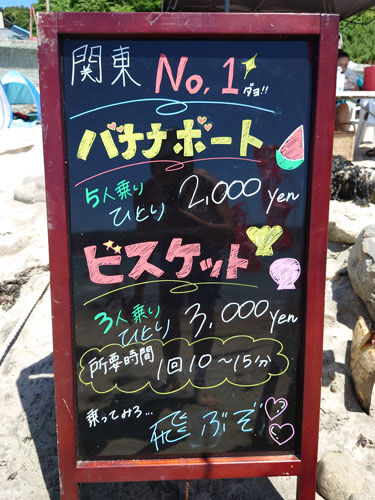 関東 No.1 ダヨ!!
バナナボート
5人乗り
ひとり 2,000 yen
ビスケット
3人乗り
ひとり 3,000 yen
所要時間 1回10〜15分
乗ってみろ... 飛ぶぞ